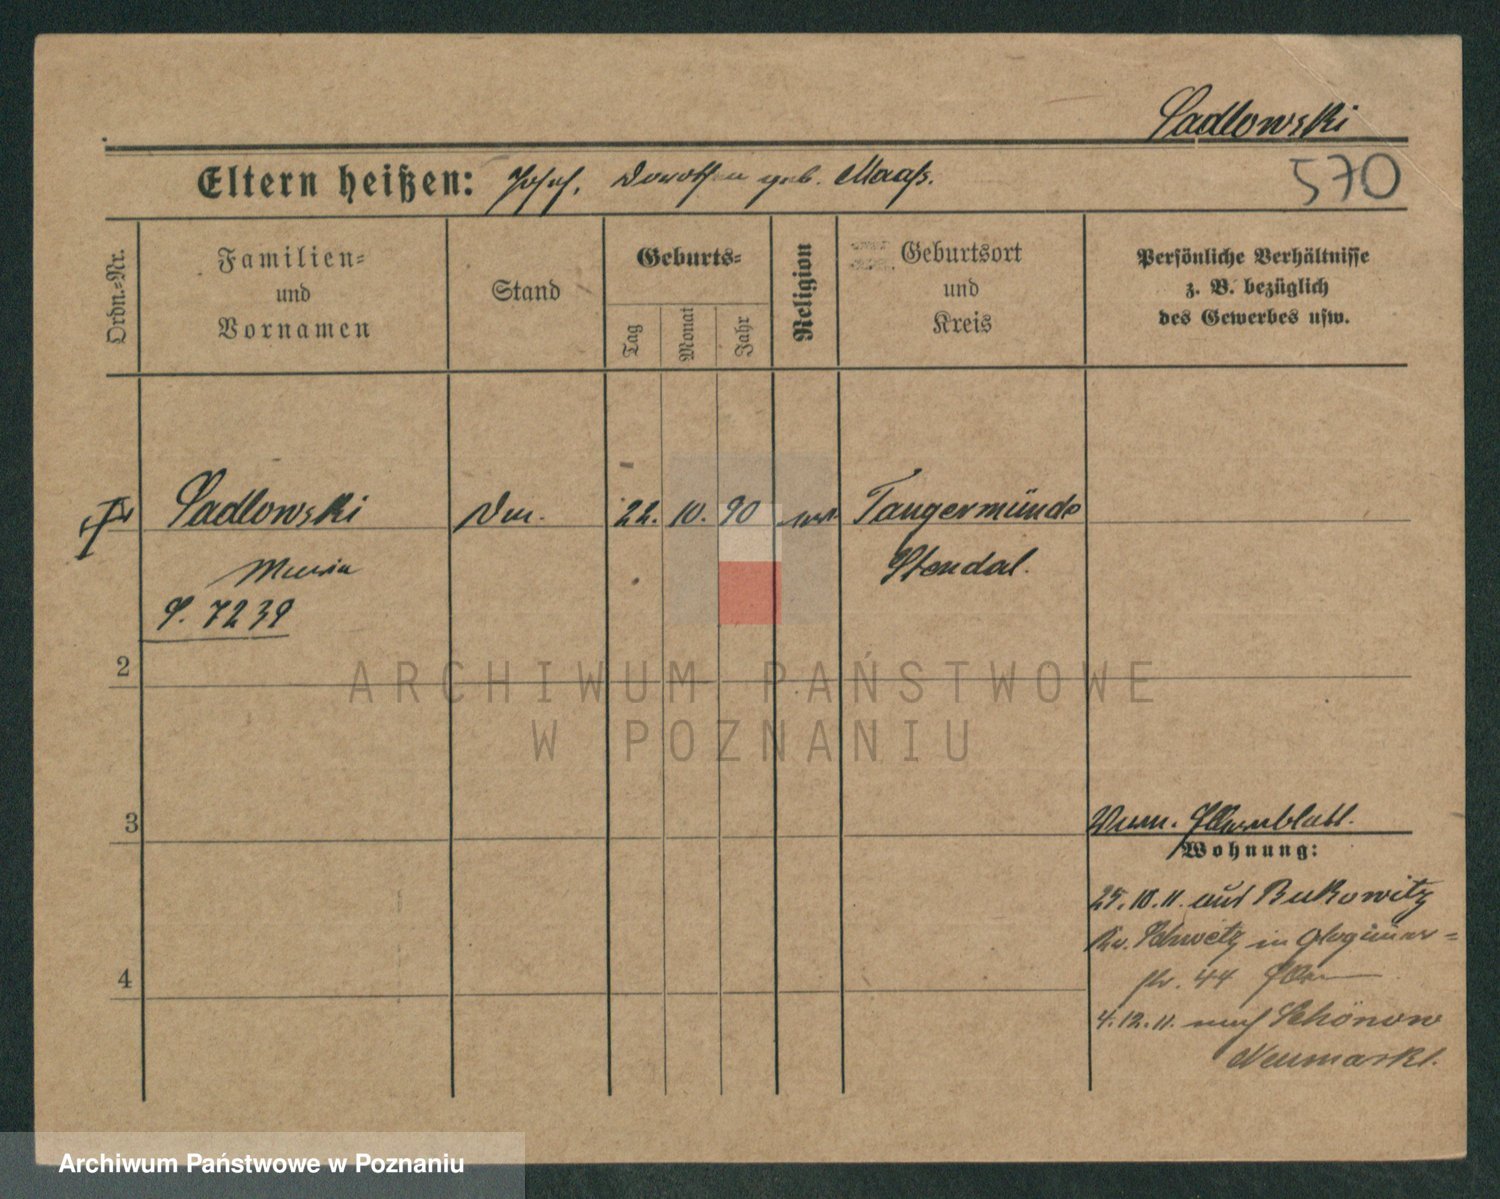 Sadlowski
Eltern heißen: Josef, Dorothea geb. Maaß.
570
Ordn.-Nr.
Familien-
und
Vornamen
Stand
Geburts-
Tag
Monat
Jahr
Religion
Geburtsort
und
Kreis
Persönliche Verhältnisse
z. B. bezüglich
des Gewerbes usw.
Sadlowski
22. 10. 90
Tangermünde
Maria
Stendal.
S. 7239
2
ARCHIWUM PAŃSTWOWE
W POZNANIU
3
Wohnung:
25.10.11. aus Bukowitz
Kr. Schwetz in Glogauer-
str. 44
4
4.12.11. nach Schönow
Neumarkt.
Archiwum Państwowe w Poznaniu